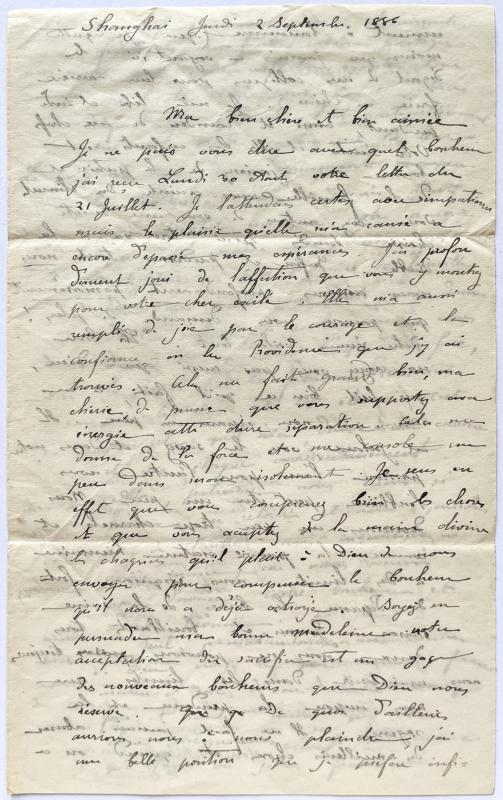 Shanghai Jeudi 2 Septembre. 1886
Ma bien chère et bien aimée
Je ne puis vous dire avec quel bonheur
j'ai reçu Lundi 30 Août votre lettre du
21 Juillet. Je l'attendais certes avec impatience
mais le plaisir qu'elle m'a causé a
encore dépassé mes espérances. J'ai profon
dément joui de l'affection que vous y montrez
pour votre cher exilé. Elle m'a aussi
rempli de joie par le courage et la
confiance en la Providence que j'y ai
trouvés. Cela me fait grand bien, ma
chérie, de penser que vous supportez avec
énergie cette dure séparation. Cela me
donne de la force et me console un
peu dans mon isolement. Je sens en
effet que vous comprenez bien les choses
et que vous acceptez de la main divine
les chagrins qu'il plait à Dieu de nous
envoyer pour compenser le bonheur
qu'il nous a déjà octroyé. Soyez en
persuadée ma bonne Madeleine notre
acceptation du sacrifice est un gage
des nouveaux bonheurs que Dieu nous
réserve. de quoi d'ailleurs
aurions nous à nous plaindre j'ai
une belle position que je préfère infi-